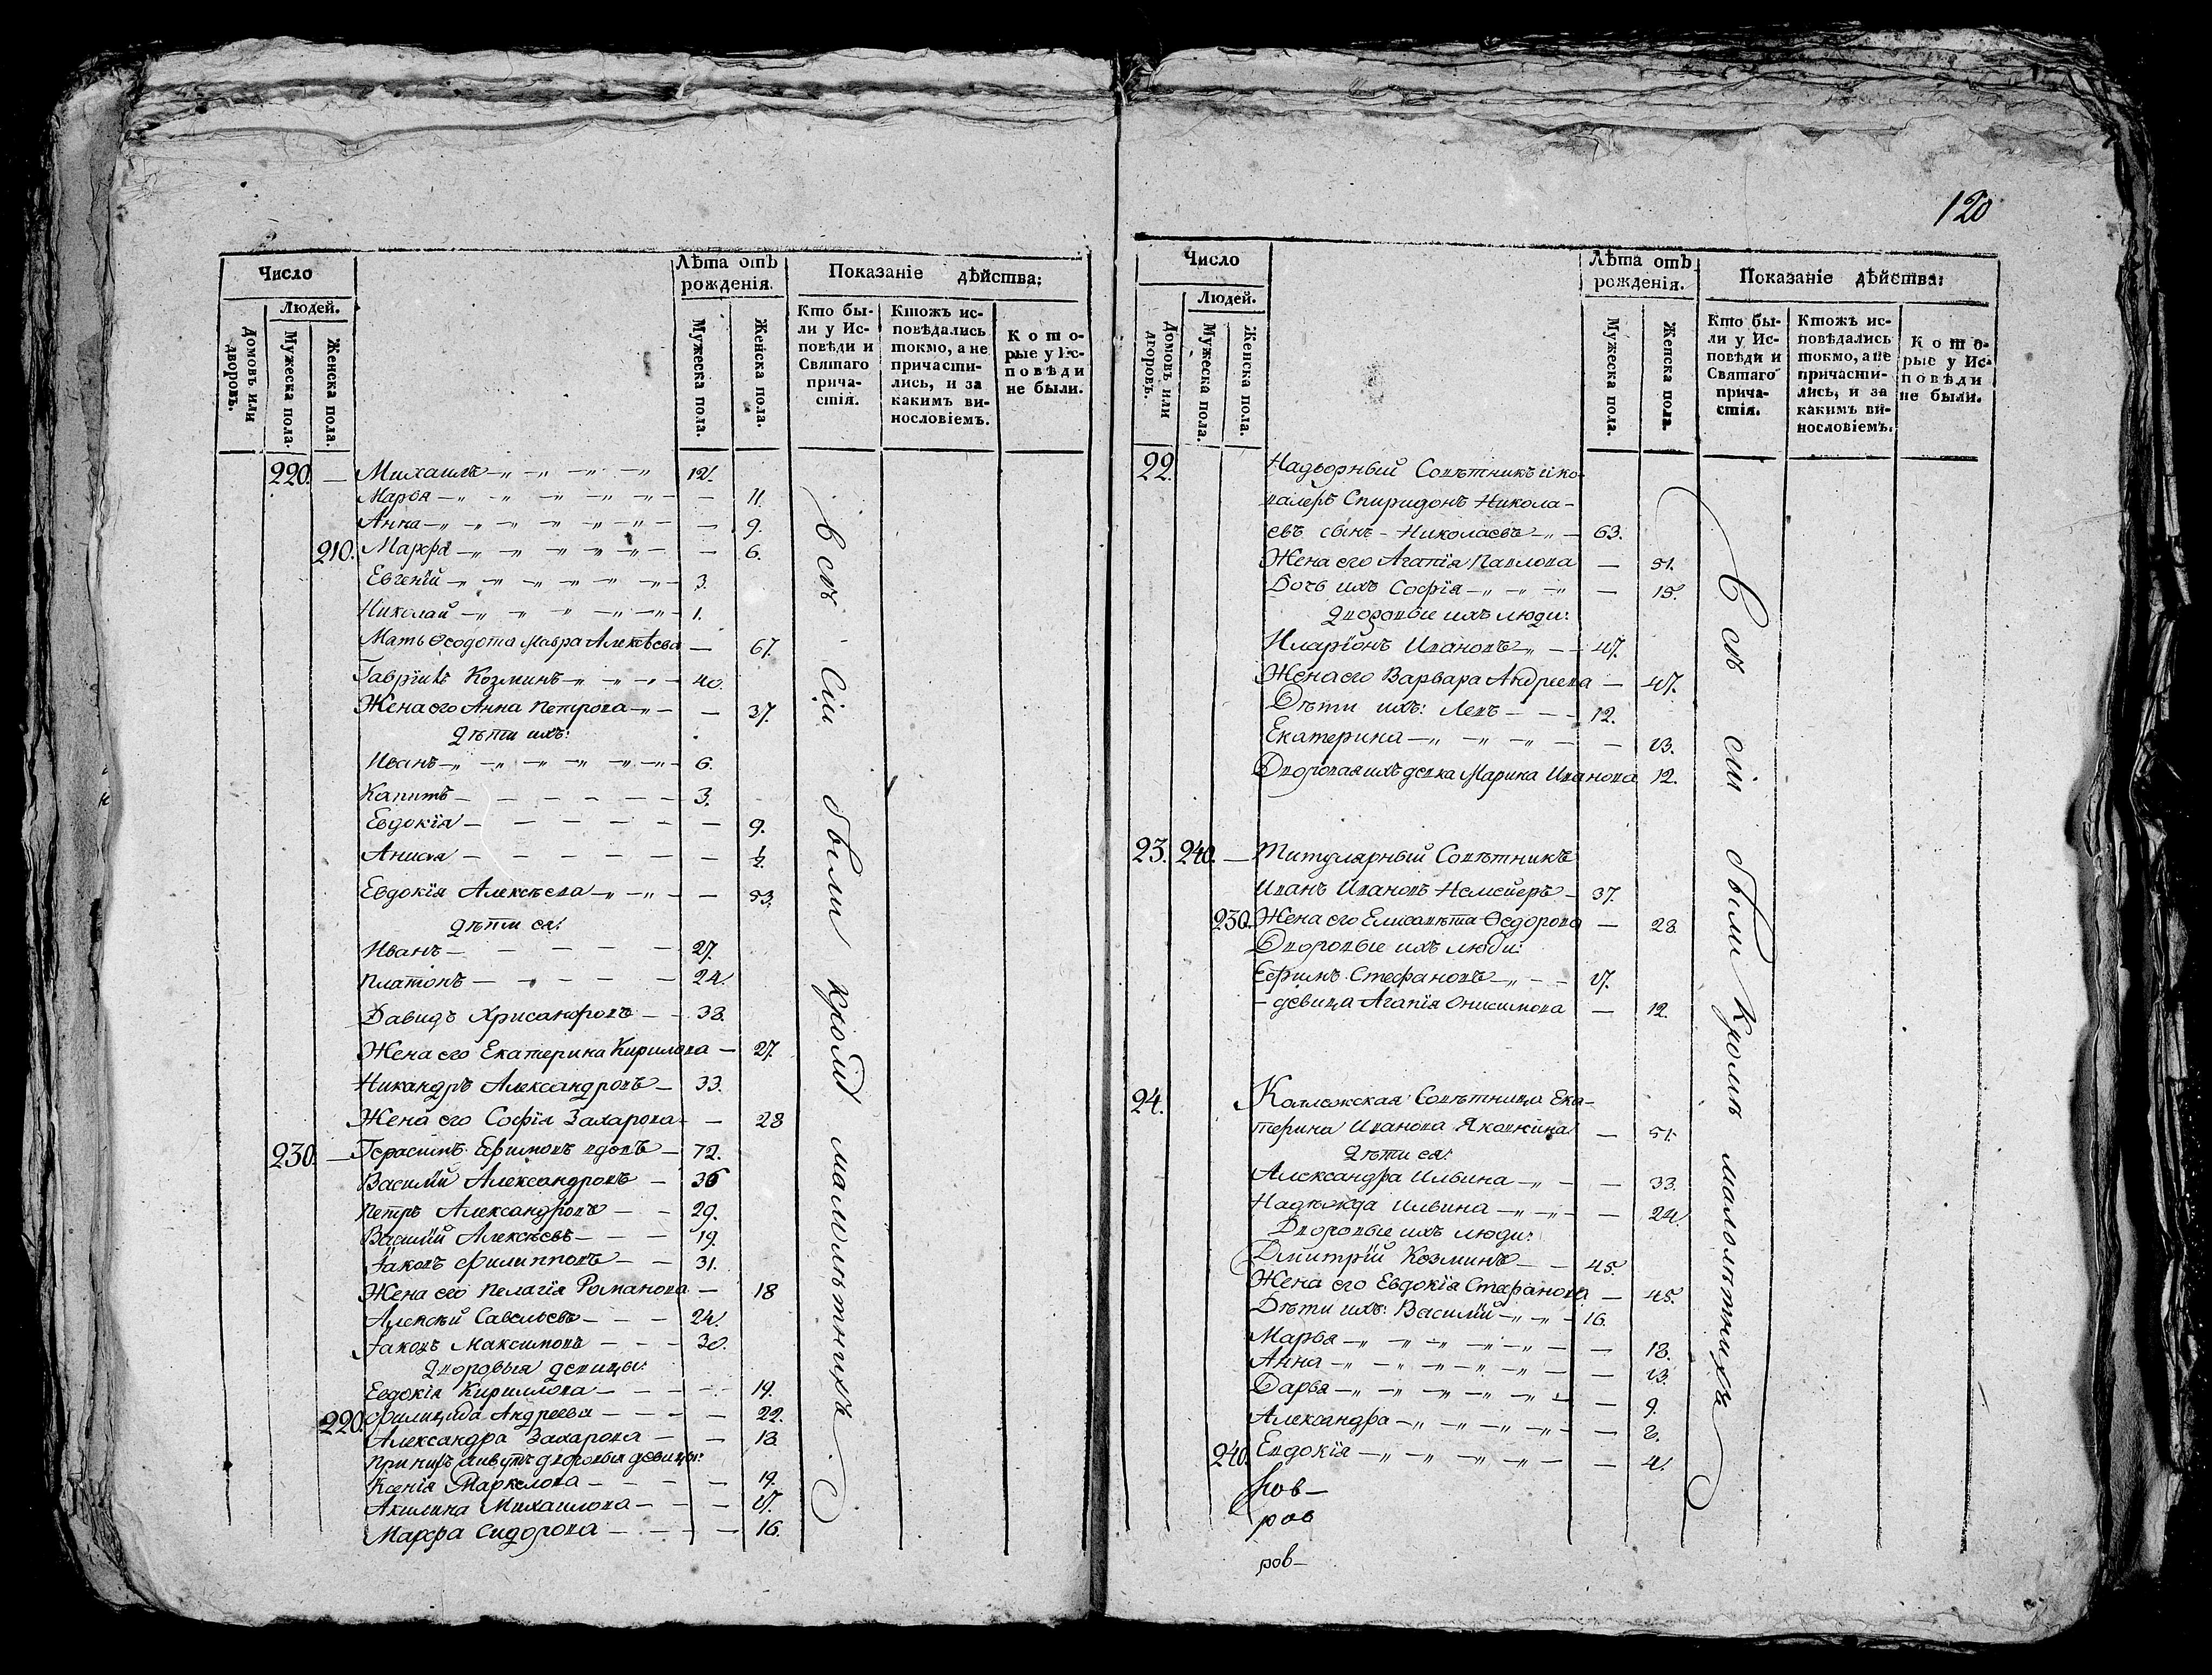 Число
Людей.
Домовъ или дворовъ.
Мужеска пола.
Женска пола.
Лѣта отъ рожденія.
Мужеска пола.
Женска пола.
Показаніе дѣйства:
Кто были у Исповѣди и Святаго причастія.
Ктожъ исповѣдались токмо, а не причастились, и за какимъ винословіемъ.
Которые у Исповѣди не были.
220. — Михаилъ 12.
Марья — 11.
Анна — 9.
210. Марфа — 6.
Евгеній 3.
Николай 1.
Мать Ѳеодота Мавра Алексѣева — 67.
Гавріилъ Козминъ 40.
Жена его Анна Петрова — 37.
дѣти ихъ:
Иванъ 6.
Капитъ 3.
Евдокія — 9.
Анисья — ½.
Евдокія Алексѣева — 53.
дѣти ея:
Иванъ — 27.
Платонъ — 24.
Давидъ Хрисанфовъ — 38.
Жена его Екатерина Кирилова — 27.
Никандръ Александровъ — 33.
Жена его Софія Захарова — 28
230. — Герасимъ Ефимовъ вдовъ — 72.
Василій Александровъ — 36
Петръ Александровъ — 29.
Василій Алексѣевъ — 19.
Іаковъ Филипповъ — 31.
Жена его Пелагія Романова — 18
Алексѣй Савельевъ — 24.
Іаковъ Максимовъ — 30.
Дворовыя девицы:
Евдокія Кирилова — 19.
220. Филицида Андреева — 22.
Александра Захарова — 18.
При нихъ живутъ дворовыя девицы:
Ксенія Маркелова — 19.
Акилина Михаилова — 17.
Марфа Сидорова — 16.
всѣ сіи были кромѣ малолѣтнихъ.
120
Число
Людей.
Домовъ или дворовъ.
Мужеска пола.
Женска пола.
Лѣта отъ рожденія.
Мужеска пола.
Женска пола.
Показаніе дѣйства:
Кто были у Исповѣди и Святаго причастія.
Ктожъ исповѣдались токмо, а не причастились, и за какимъ винословіемъ.
Которые у Исповѣди не были.
22. Надворный Совѣтникъ и ко-
валеръ Спиридонъ Никола-
евъ сынъ Николаевъ — 63.
Жена его Агапія Павлова — 51.
Дочь ихъ Софія — 15.
Дворовые ихъ люди:
Иларіонъ Ивановъ — 47.
Жена его Варвара Андреева — 47.
Дѣти ихъ: Левъ — 12.
Екатерина — 13.
Дворовая ихъ девка Марина Иванова 12.
23. 240. — Титулярный Совѣтникъ
Иванъ Ивановъ Немейеръ — 37.
230. Жена его Елисавѣта Ѳедорова — 28.
Дворовые ихъ люди:
Ефимъ Стефановъ — 17.
девица Агапія Онисимова — 12.
24. Коллежская Совѣтница Ека-
терина Иванова Яковкина — 51.
Дѣти ея:
Александра Ильина — 33.
Надѣжда Ильина — 24.
Дворовые ихъ люди:
Дмитрій Козминъ — 45.
Жена его Евдокія Стефанова — 45.
Дѣти ихъ: Василій — 16.
Марья — 18.
Анна — 13.
Дарья — 9.
Александра — 8.
240. Евдокія — 4.
ров —
ров —
всѣ сіи были кромѣ малолѣтнихъ